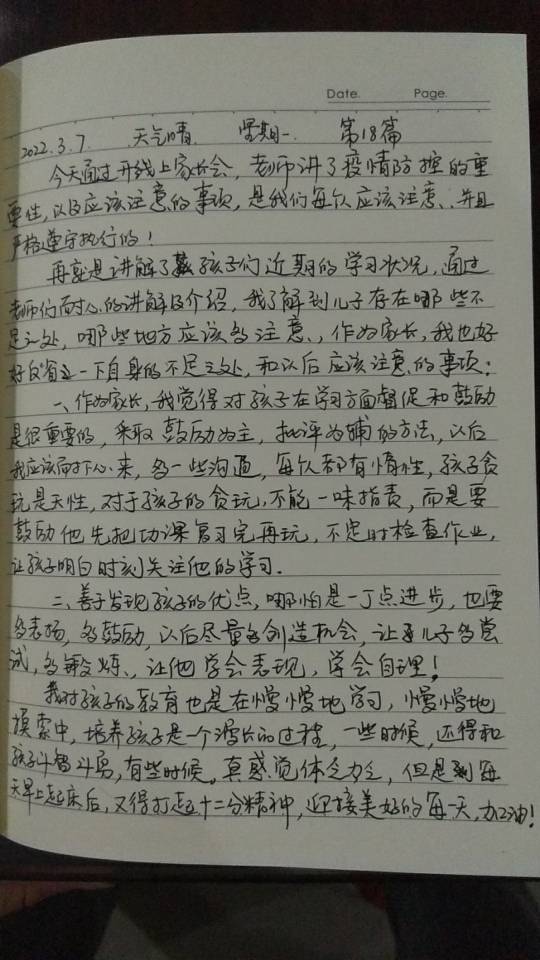 Date. Page.
2022.3.7. 天气晴. 星期一. 第18篇
今天通过开线上家长会,老师讲了疫情防控的重
要性,以及应该注意的事项,是我们每个人应该注意、并且
严格遵守执行的!
再就是讲解了孩子们近期的学习状况,通过
老师们耐心的讲解及介绍,我了解到儿子存在哪些不
足之处,哪些地方应该多注意、,作为家长,我也好
好反省一下自身的不足之处,和以后应该注意的事项:
一、作为家长,我觉得对孩子在学习方面督促和鼓励
是很重要的,采取鼓励为主,批评为辅的方法,以后
我应该耐下心来,多一些沟通,每个人都有惰性,孩子贪
玩是天性,对于孩子的贪玩,不能一味指责,而是要
鼓励他先把功课复习完再玩,不定时检查作业,
让孩子明白时刻关注他的学习.
二、善于发现孩子的优点,哪怕是一丁点进步,也要
多表扬,多鼓励,以后尽量多创造机会,让儿子多尝
试,多锻炼、,让他学会表现,学会自理!
我对孩子的教育也是在慢慢地学习,慢慢地
摸索中,培养孩子是一个漫长的过程,一些时候,还得和
孩子斗智斗勇,有些时候,真感觉体乏力乏,但是到每
天早上起床后,又得打起十二分精神,迎接美好的每一天,加油!